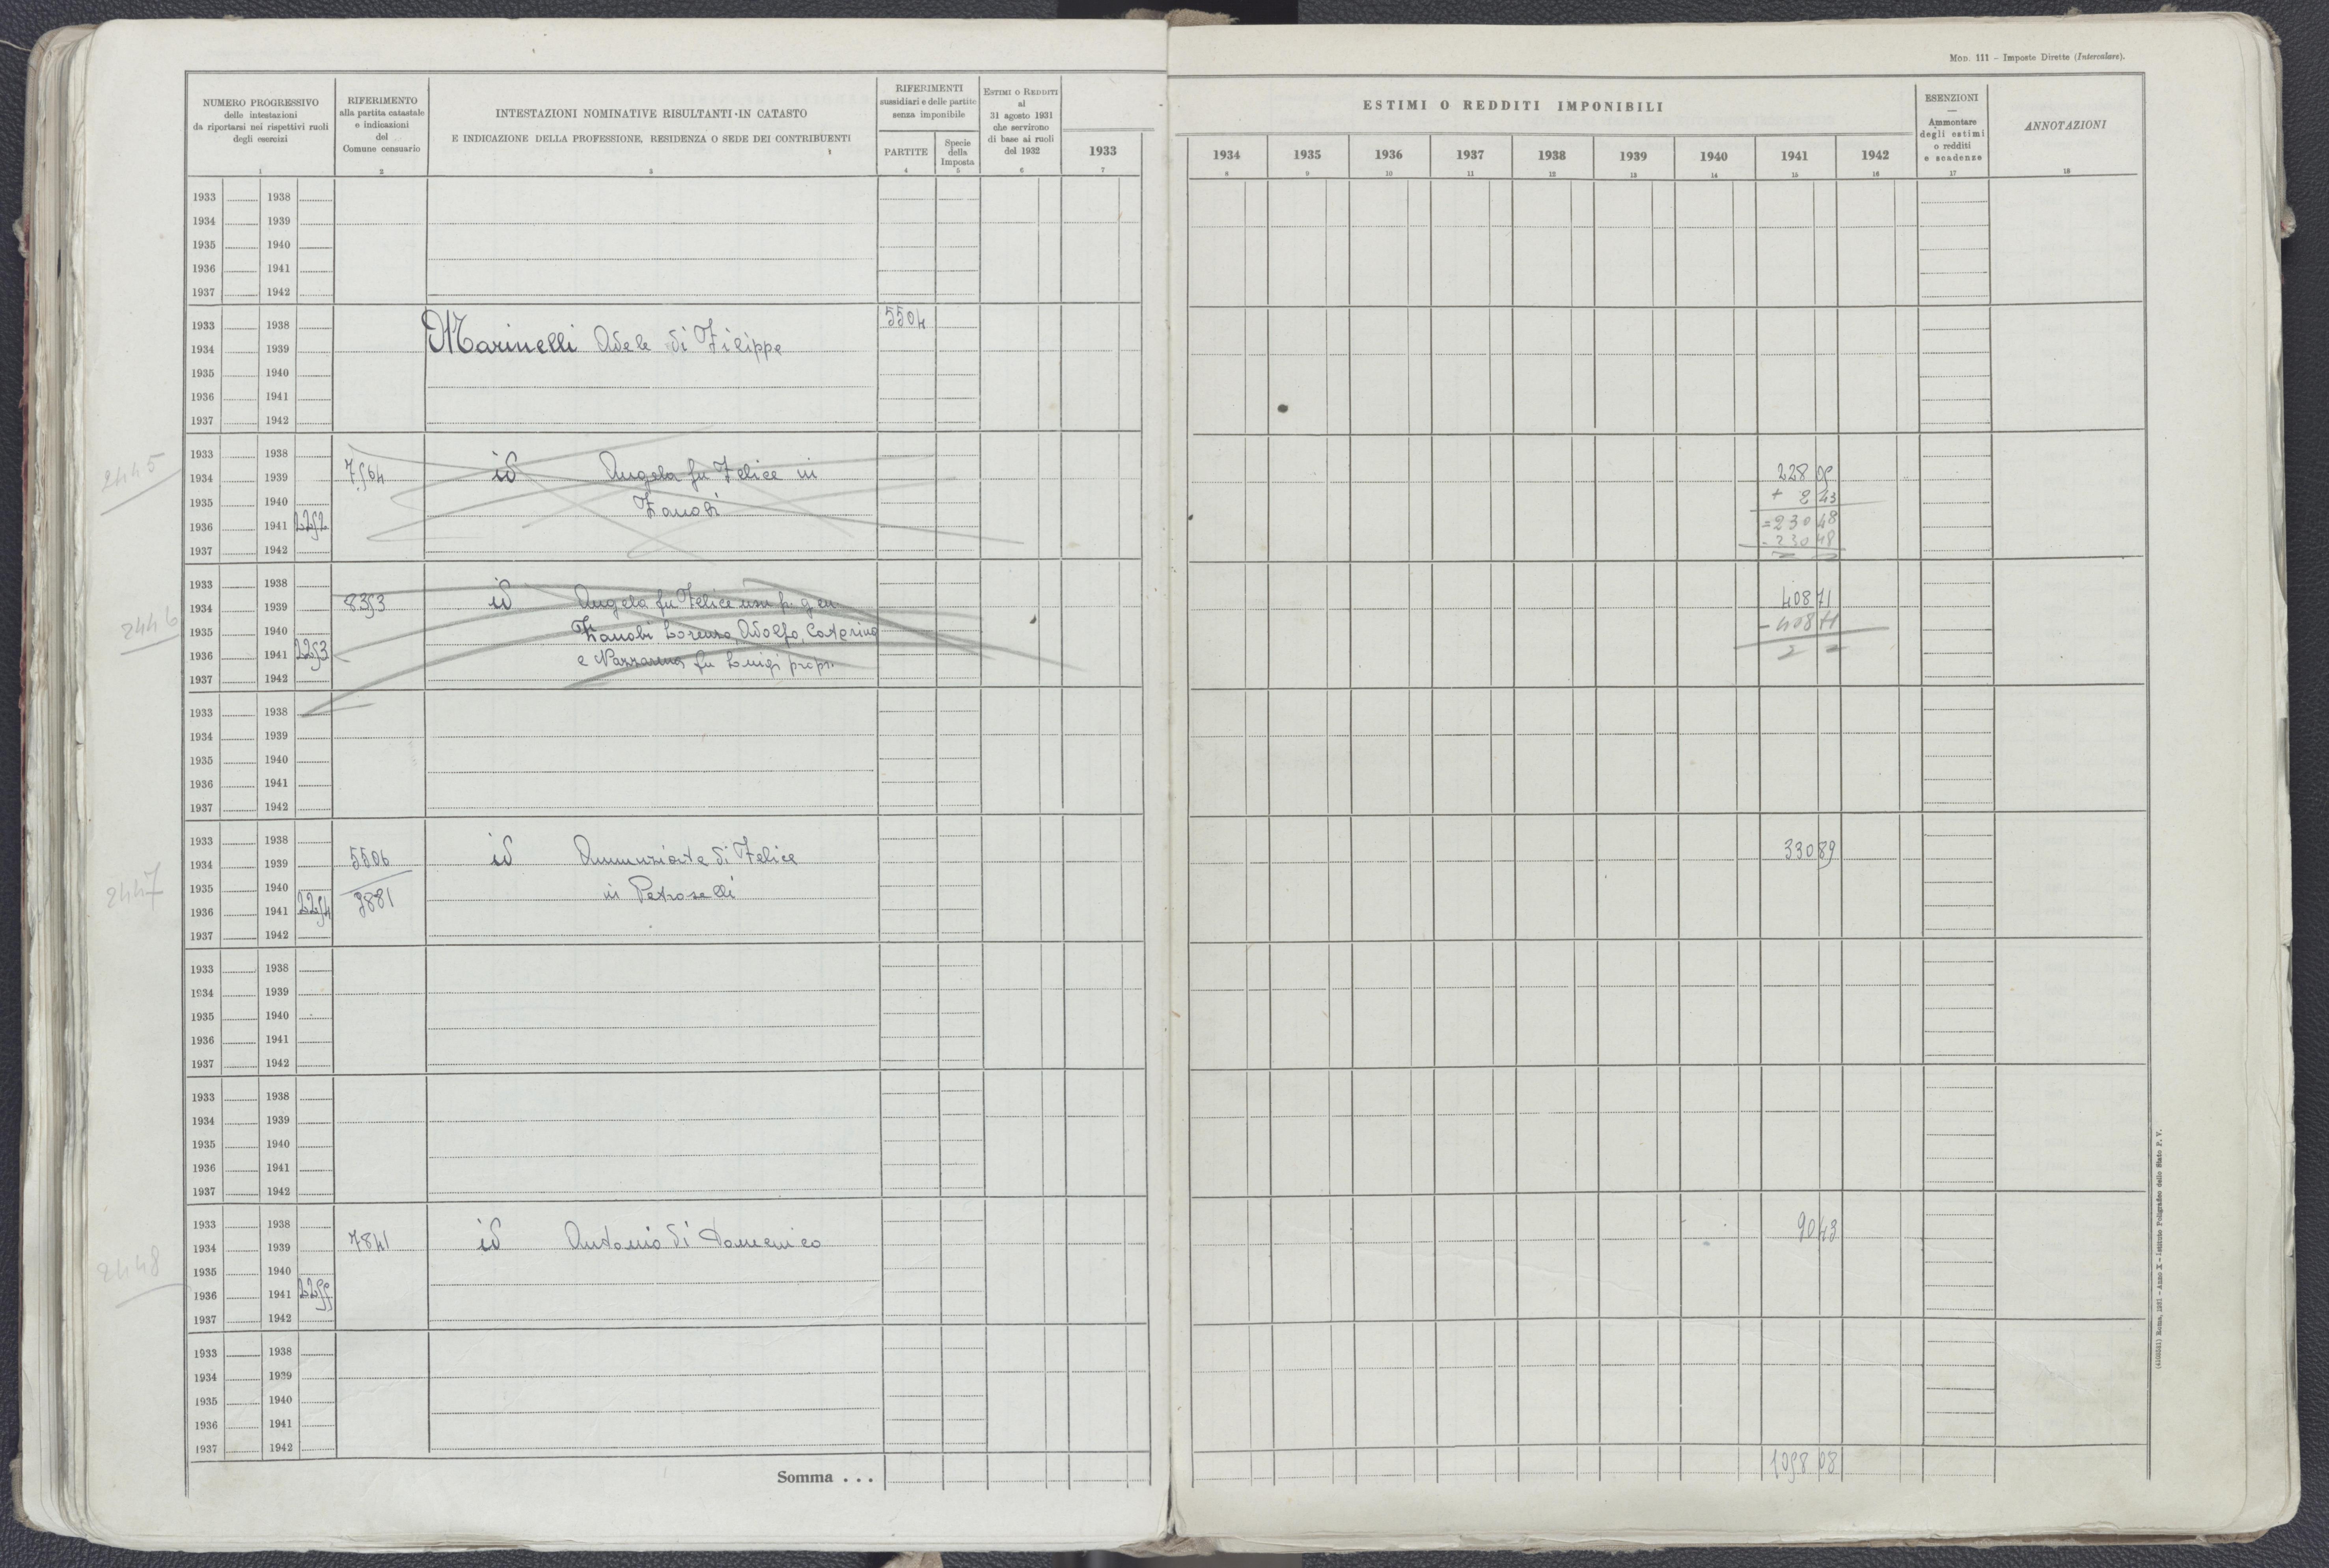 Mod. 111 - Imposte Dirette (Intercalare).
NUMERO PROGRESSIVO
delle intestazioni
da riportarsi nei rispettivi ruoli
degli esercizi
1
RIFERIMENTO
alla partita catastale
e indicazioni
del
Comune censuario
2
INTESTAZIONI NOMINATIVE RISULTANTI IN CATASTO
E INDICAZIONE DELLA PROFESSIONE, RESIDENZA O SEDE DEI CONTRIBUENTI
3
RIFERIMENTI
sussidiari e delle partite
senza imponibile
PARTITE
4
Specie
della
Imposta
5
ESTIMI O REDDITI
al
31 agosto 1931
che servirono
di base ai ruoli
del 1932
6
1933
7
ESTIMI O REDDITI IMPONIBILI
1934 1935 1936 1937 1938 1939 1940 1941 1942
8 9 10 11 12 13 14 15 16
ESENZIONI
—
Ammontare
degli estimi
o redditi
e scadenze
17
ANNOTAZIONI
18
1933 1938
1934 1939
1935 1940
1936 1941
1937 1942
1933 1938 5504
1934 1939 Marinelli Adele di Filippo
1935 1940
1936 1941
1937 1942
2445
1933 1938
1934 1939 7564 id Angela fu Felice in 228 05
1935 1940 Zanobi + 2 43
1936 1941 2252 = 230 48
1937 1942 - 230 48
2446
1933 1938
1934 1939 8353 id Angela fu Felice usuf. gen. 408 71
1935 1940 Zanobi Lorenzo, Adolfo, Caterina - 408 71
1936 1941 2253 e Nazzarena fu Luigi propr.
1937 1942
1933 1938
1934 1939
1935 1940
1936 1941
1937 1942
2447
1933 1938
1934 1939 5506 id Annunziata di Felice 330 89
1935 1940 in Petroselli
1936 1941 2254 9881
1937 1942
1933 1938
1934 1939
1935 1940
1936 1941
1937 1942
1933 1938
1934 1939
1935 1940
1936 1941
1937 1942
2448
1933 1938
1934 1939 7841 id Antonio di Domenico 90 43
1935 1940
1936 1941 2255
1937 1942
1933 1938
1934 1939
1935 1940
1936 1941
1937 1942
Somma . . . 1058 08
Roma, 1931 - Anno X - Istituto Poligrafico dello Stato P. V.